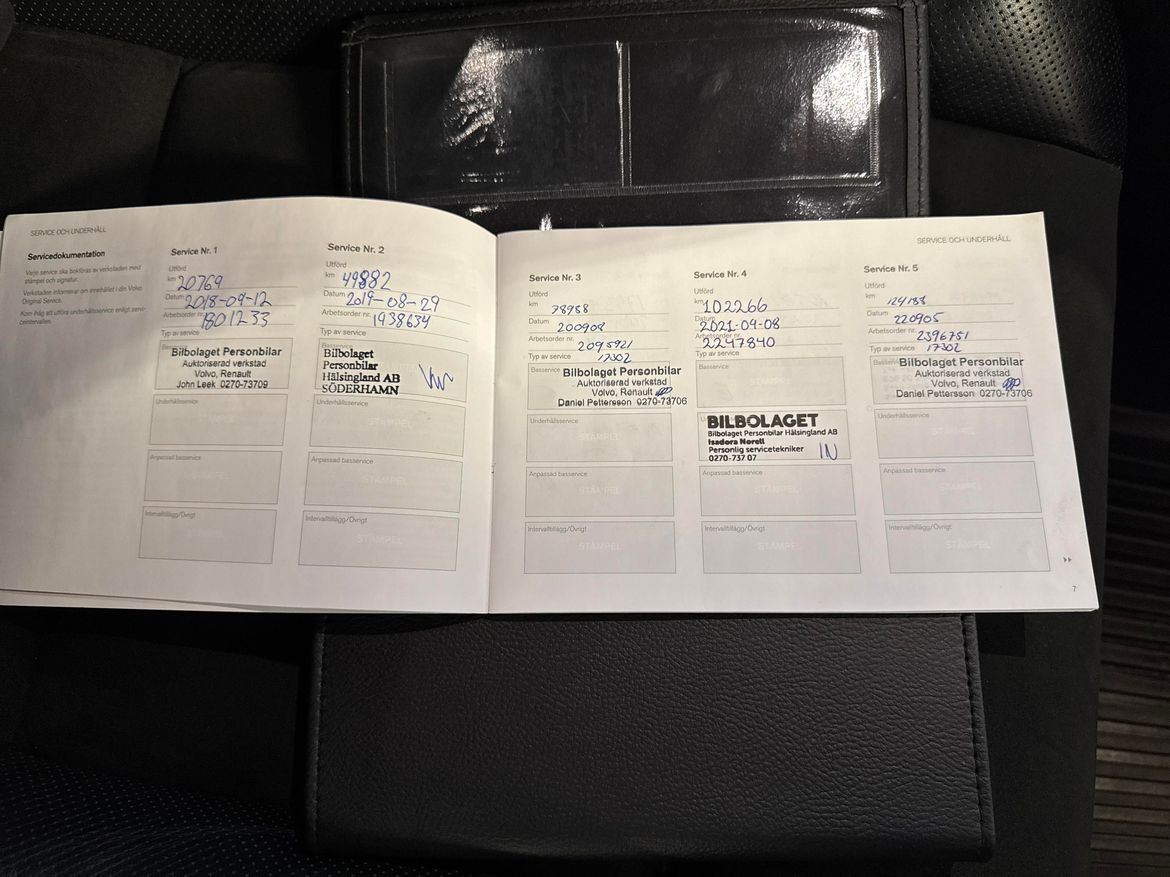 SERVICE OCH UNDERHÅLL
Servicedokumentation
Varje service ska bokföras av verkstaden med
stämpel och signatur.
Verkstaden informerar om innehållet i din Volvo
Original Service.
Kom ihåg att utföra underhållsservice enligt serv-
iceintervallen.
Service Nr. 1
Utförd
km 20769
Datum 2018-09-12
Arbetsorder nr. 1801233
Typ av service
Bilbolaget Personbilar
Auktoriserad verkstad
Volvo, Renault
John Leek 0270-73709
Underhållsservice
Anpassad basservice
Intervalltillägg/Övrigt
Service Nr. 2
Utförd
km 49882
Datum 2019-08-29
Arbetsorder nr. 1938634
Typ av service
Basservice
Bilbolaget
Personbilar
Hälsingland AB
SÖDERHAMN
Underhållsservice
STÄMPEL
Anpassad basservice
STÄMPEL
Intervalltillägg/Övrigt
STÄMPEL
SERVICE OCH UNDERHÅLL
Service Nr. 3
Utförd
km 78988
Datum 200908
Arbetsorder nr. 2095921
Typ av service 17302
Basservice
Bilbolaget Personbilar
Auktoriserad verkstad
Volvo, Renault
Daniel Pettersson 0270-73706
Underhållsservice
STÄMPEL
Anpassad basservice
STÄMPEL
Intervalltillägg/Övrigt
STÄMPEL
Service Nr. 4
Utförd
km 102266
Datum 2021-09-08
Arbetsorder nr. 2247840
Typ av service
Basservice
STÄMPEL
BILBOLAGET
Bilbolaget Personbilar Hälsingland AB
Isadora Norell
Personlig servicetekniker
0270-737 07
IN
Anpassad basservice
STÄMPEL
Intervalltillägg/Övrigt
STÄMPEL
Service Nr. 5
Utförd
km 124188
Datum 220905
Arbetsorder nr. 2396751
Typ av service 17302
Basservice
Bilbolaget Personbilar
Auktoriserad verkstad
Volvo, Renault
Daniel Pettersson 0270-73706
Underhållsservice
STÄMPEL
Anpassad basservice
STÄMPEL
Intervalltillägg/Övrigt
STÄMPEL
7